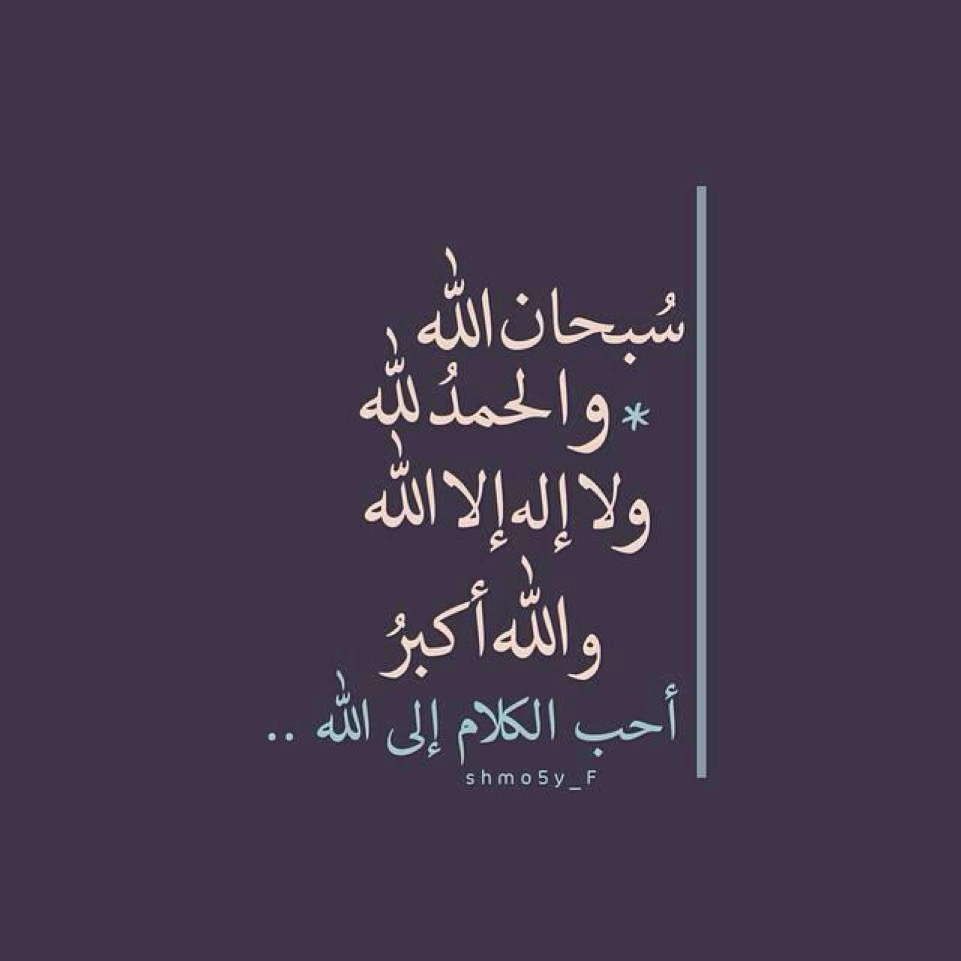 سُبحان الله
* والحمدُ لله
ولا إله إلا الله
والله أكبرُ
أحب الكلام إلى الله ..
shmo5y_F